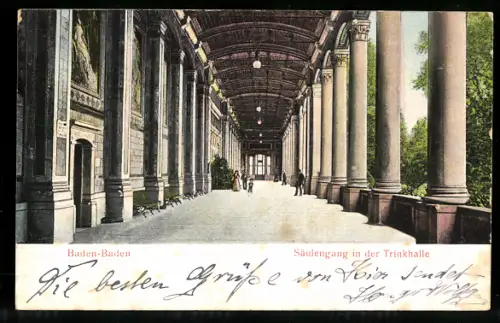 Baden-Baden
Säulengang in der Trinkhalle
Die besten Grüße von hier sendet